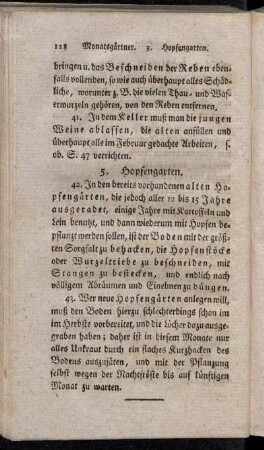 128 Monatsgärtner. 3. Hopfengarten.
bringen u. das Beschneiden der Reben eben-
falls vollenden, so wie auch überhaupt alles Schäd-
liche, worunter z. B. die vielen Thau- und Was-
serwurzeln gehören, von den Reben entfernen.
41. In dem Keller muß man die jungen
Weine ablassen, die alten anfüllen und
überhaupt alle im Februar gedachte Arbeiten, s.
ob. S. 47 verrichten.
5. Hopfengarten.
42. In den bereits vorhandenen alten Ho-
pfengärten, die jedoch aller 12 bis 15 Jahre
ausgeradet, einige Jahre mit Kartoffeln und
Lein benutzt, und dann wiederum mit Hopfen be-
pflanzt werden sollen, ist der Boden mit der größ-
ten Sorgfalt zu behacken, die Hopfenstöcke
oder Wurzeltriebe zu beschneiden, mit
Stangen zu bestecken, und endlich nach
völligem Abräumen und Einebnen zu düngen.
43. Wer neue Hopfengärten anlegen will,
muß den Boden hierzu schlechterdings schon im
im Herbste vorbereitet, und die Löcher dazu ausge-
graben haben; daher ist in diesem Monate nur
alles Unkraut durch ein flaches Kurzhacken des
Bodens auszujäten, und mit der Pflanzung
selbst wegen der Nachtfröste bis auf künftigen
Monat zu warten.